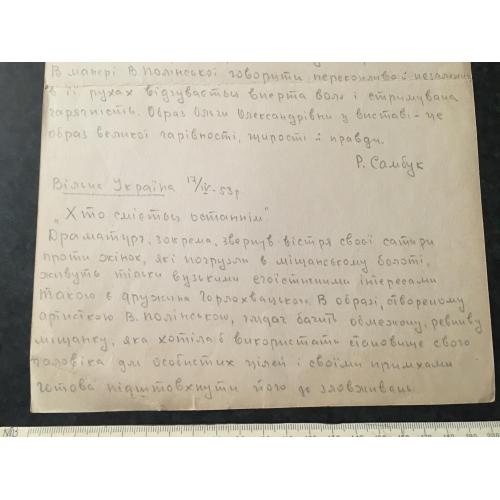 В манері В. Полінської говорити переконливо й незалежно
в її рухах відчувається вперта воля і стримувана
гарячність. Образ Ольги Олександрівни у виставі - це
образ великої гарівності, щирості й правди.
Р. Самбук
Вільна Україна 17/IV-53р.
"Хто сміється останнім"
Драматург, зокрема, звернув вістря своєї сатири
проти жінок, які погрузли в міщанському болоті,
живуть тільки вузькими егоістичними інтересами
такою є дружина Горлохвацького. В образі, створеному
артисткою В. Полінською, глядач бачить обмежену, ревниву
міщанку, яка хотіла б використать становище свого
чоловіка для особистих цілей і своїми примхами
готова підштовхнути його до зловживань.